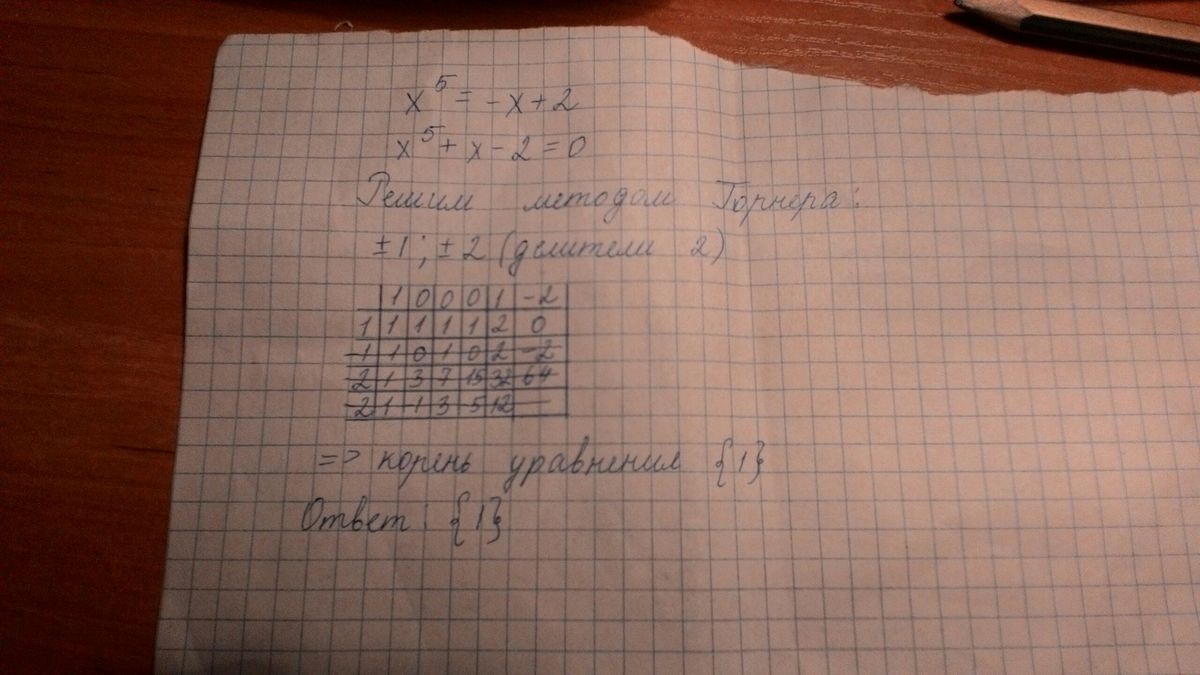 x⁵ = -x + 2
x⁵ + x - 2 = 0
Решим методом Горнера:
±1; ±2 (делители 2)
1 0 0 0 1 -2
1 1 1 1 1 2 0
-1 1 0 1 0 2 -2
2 1 3 7 15 32 64
-2 1 -1 3 -5 12 —
=> корень уравнения {1}
Ответ: {1}